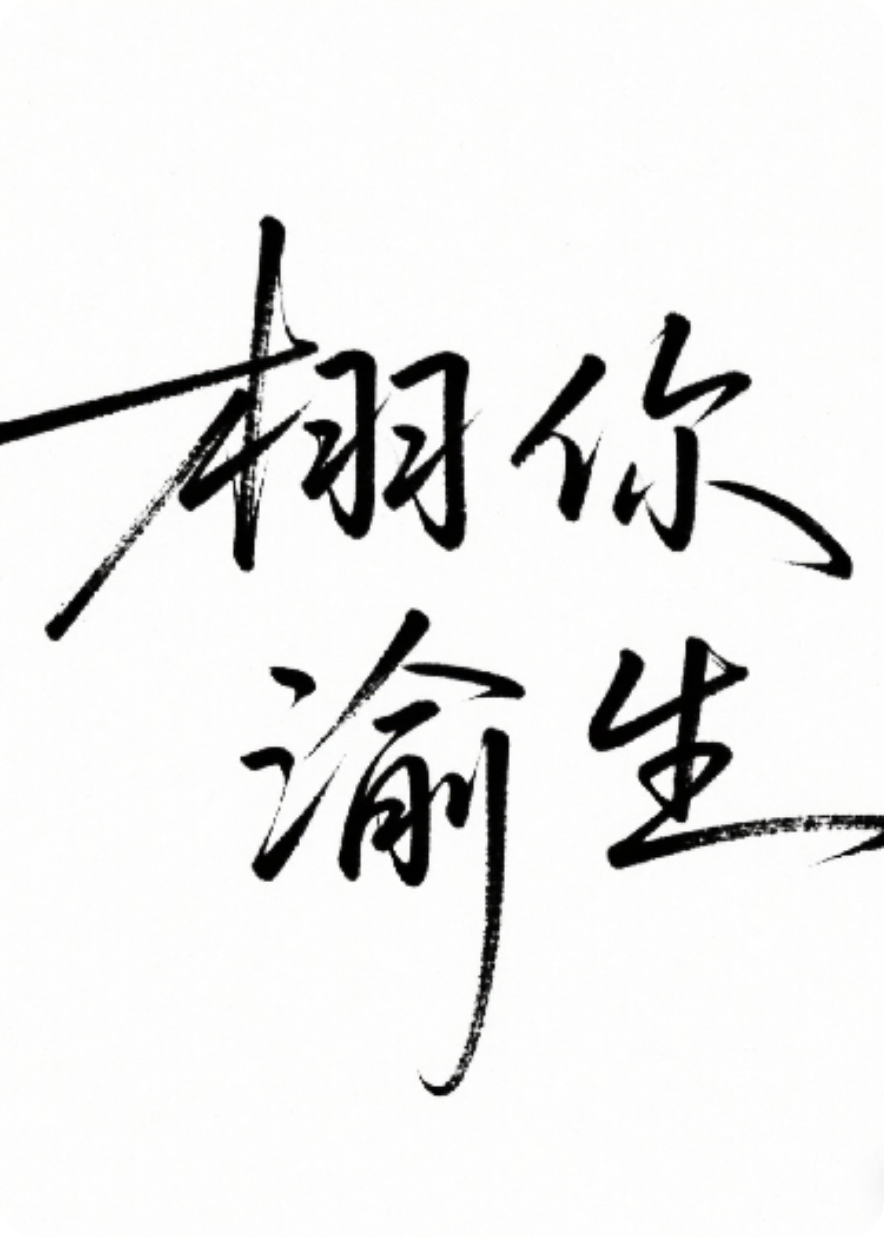 栩你
渝生